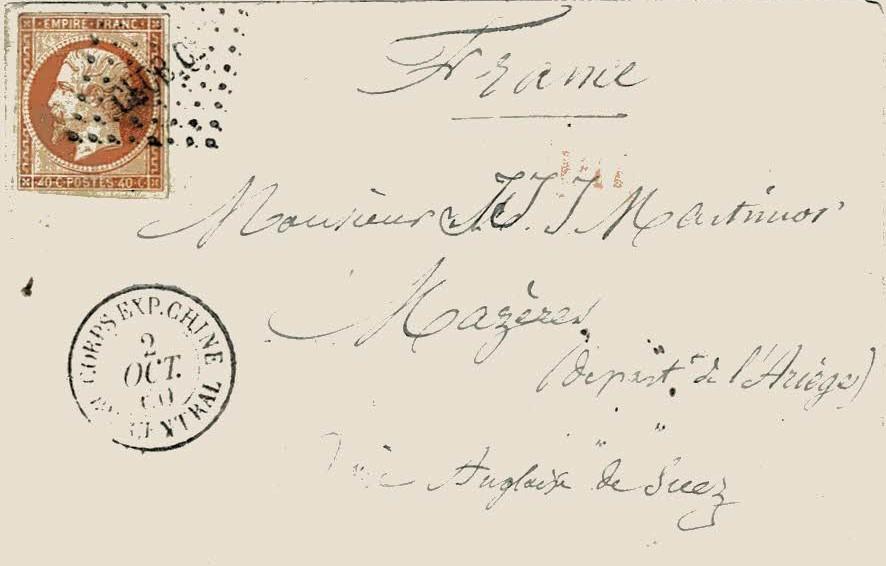 EMPIRE FRANC.
40·C·POSTES·40·C
France
Monsieur J. J. Martimor
Mazères
(Départ.t de l'Ariège)
Voie Anglaise de Suez
CORPS EXP. CHINE
2
OCT.
60
CENTRAL